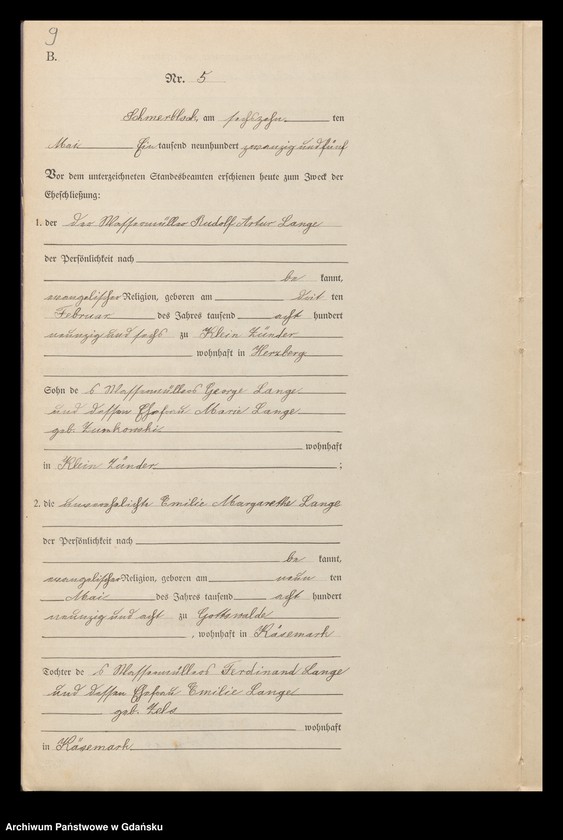 9
B.
Nr. 5
Schmerblock, am sechszehn ten
Mai Ein tausend neunhundert zwanzig und fünf
Vor dem unterzeichneten Standesbeamten erschienen heute zum Zweck der
Eheschließung:
1. der der Wassermüller Rudolf Artur Lange
der Persönlichkeit nach
be kannt,
evangelischer Religion, geboren am ten
Februar des Jahres tausend acht hundert
neunzig und sechs zu Klein Zünder
wohnhaft in Herzberg
Sohn de s Wassermüllers George Lange
und dessen Ehefrau Marie Lange
geb.
wohnhaft
in Klein Zünder ;
2. die unverehelichte Emilie Margarethe Lange
der Persönlichkeit nach
be kannt,
evangelischer Religion, geboren am neun ten
Mai des Jahres tausend acht hundert
neunzig und acht zu Gottswalde
, wohnhaft in Käsemark
Tochter de s Wassermüllers Ferdinand Lange
und dessen Ehefrau Emilie Lange
geb.
wohnhaft
in Käsemark
Archiwum Państwowe w Gdańsku